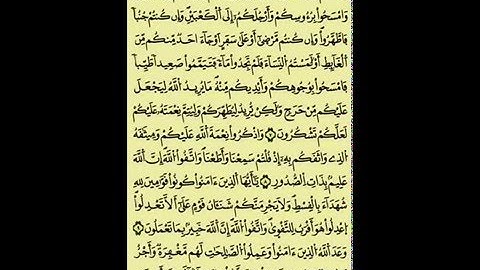 وَامْسَحُواْ بِرُءُوسِكُمْ وَأَرْجُلَكُمْ إِلَى اَلْكَعْبَيْنِ وَإِن كُنتُمْ جُنُباً
فَاطَّهَّرُواْ وَإِن كُنتُم مَّرْضَىٰ أَوْ عَلَىٰ سَفَرٍ أَوْ جَآءَ احَدٌ مِّنكُم مِّنَ
اَلْغَآئِطِ أَوْ لَٰمَسْتُمُ اُلنِّسَآءَ فَلَمْ تَجِدُواْ مَآءً فَتَيَمَّمُواْ صَعِيداً طَيِّباً
فَامْسَحُواْ بِوُجُوهِكُمْ وَأَيْدِيكُم مِّنْهُ مَا يُرِيدُ اُللَّهُ لِيَجْعَلَ
عَلَيْكُم مِّنْ حَرَجٍ وَلَٰكِنْ يُّرِيدُ لِيُطَهِّرَكُمْ وَلِيُتِمَّ نِعْمَتَهُۥ عَلَيْكُمْ
لَعَلَّكُمْ تَشْكُرُونَ وَاذْكُرُواْ نِعْمَةَ اَللَّهِ عَلَيْكُمْ وَمِيثَٰقَهُ
اُلَّذِے وَاثَقَكُم بِهِۦ إِذْ قُلْتُمْ سَمِعْنَا وَأَطَعْنَا وَاتَّقُواْ اُللَّهَ إِنَّ اَللَّهَ
عَلِيمٌ بِذَاتِ اِلصُّدُورِ يَٰٓأَيُّهَا اَلَّذِينَ ءَامَنُواْ كُونُواْ قَوَّٰمِينَ لِلهِ
شُهَدَآءَ بِالْقِسْطِ وَلَا يَجْرِمَنَّكُمْ شَنَـَٔانُ قَوْمٍ عَلَىٰٓ أَلَّا تَعْدِلُواْ
اُعْدِلُواْ هُوَ أَقْرَبُ لِلتَّقْوَىٰ وَاتَّقُواْ اُللَّهَ إِنَّ اَللَّهَ خَبِيرٌ بِمَا تَعْمَلُونَ
وَعَدَ اَللَّهُ اُلَّذِينَ ءَامَنُواْ وَعَمِلُواْ اُلصَّٰلِحَٰتِ لَهُم مَّغْفِرَةٌ وَأَجْرٌ